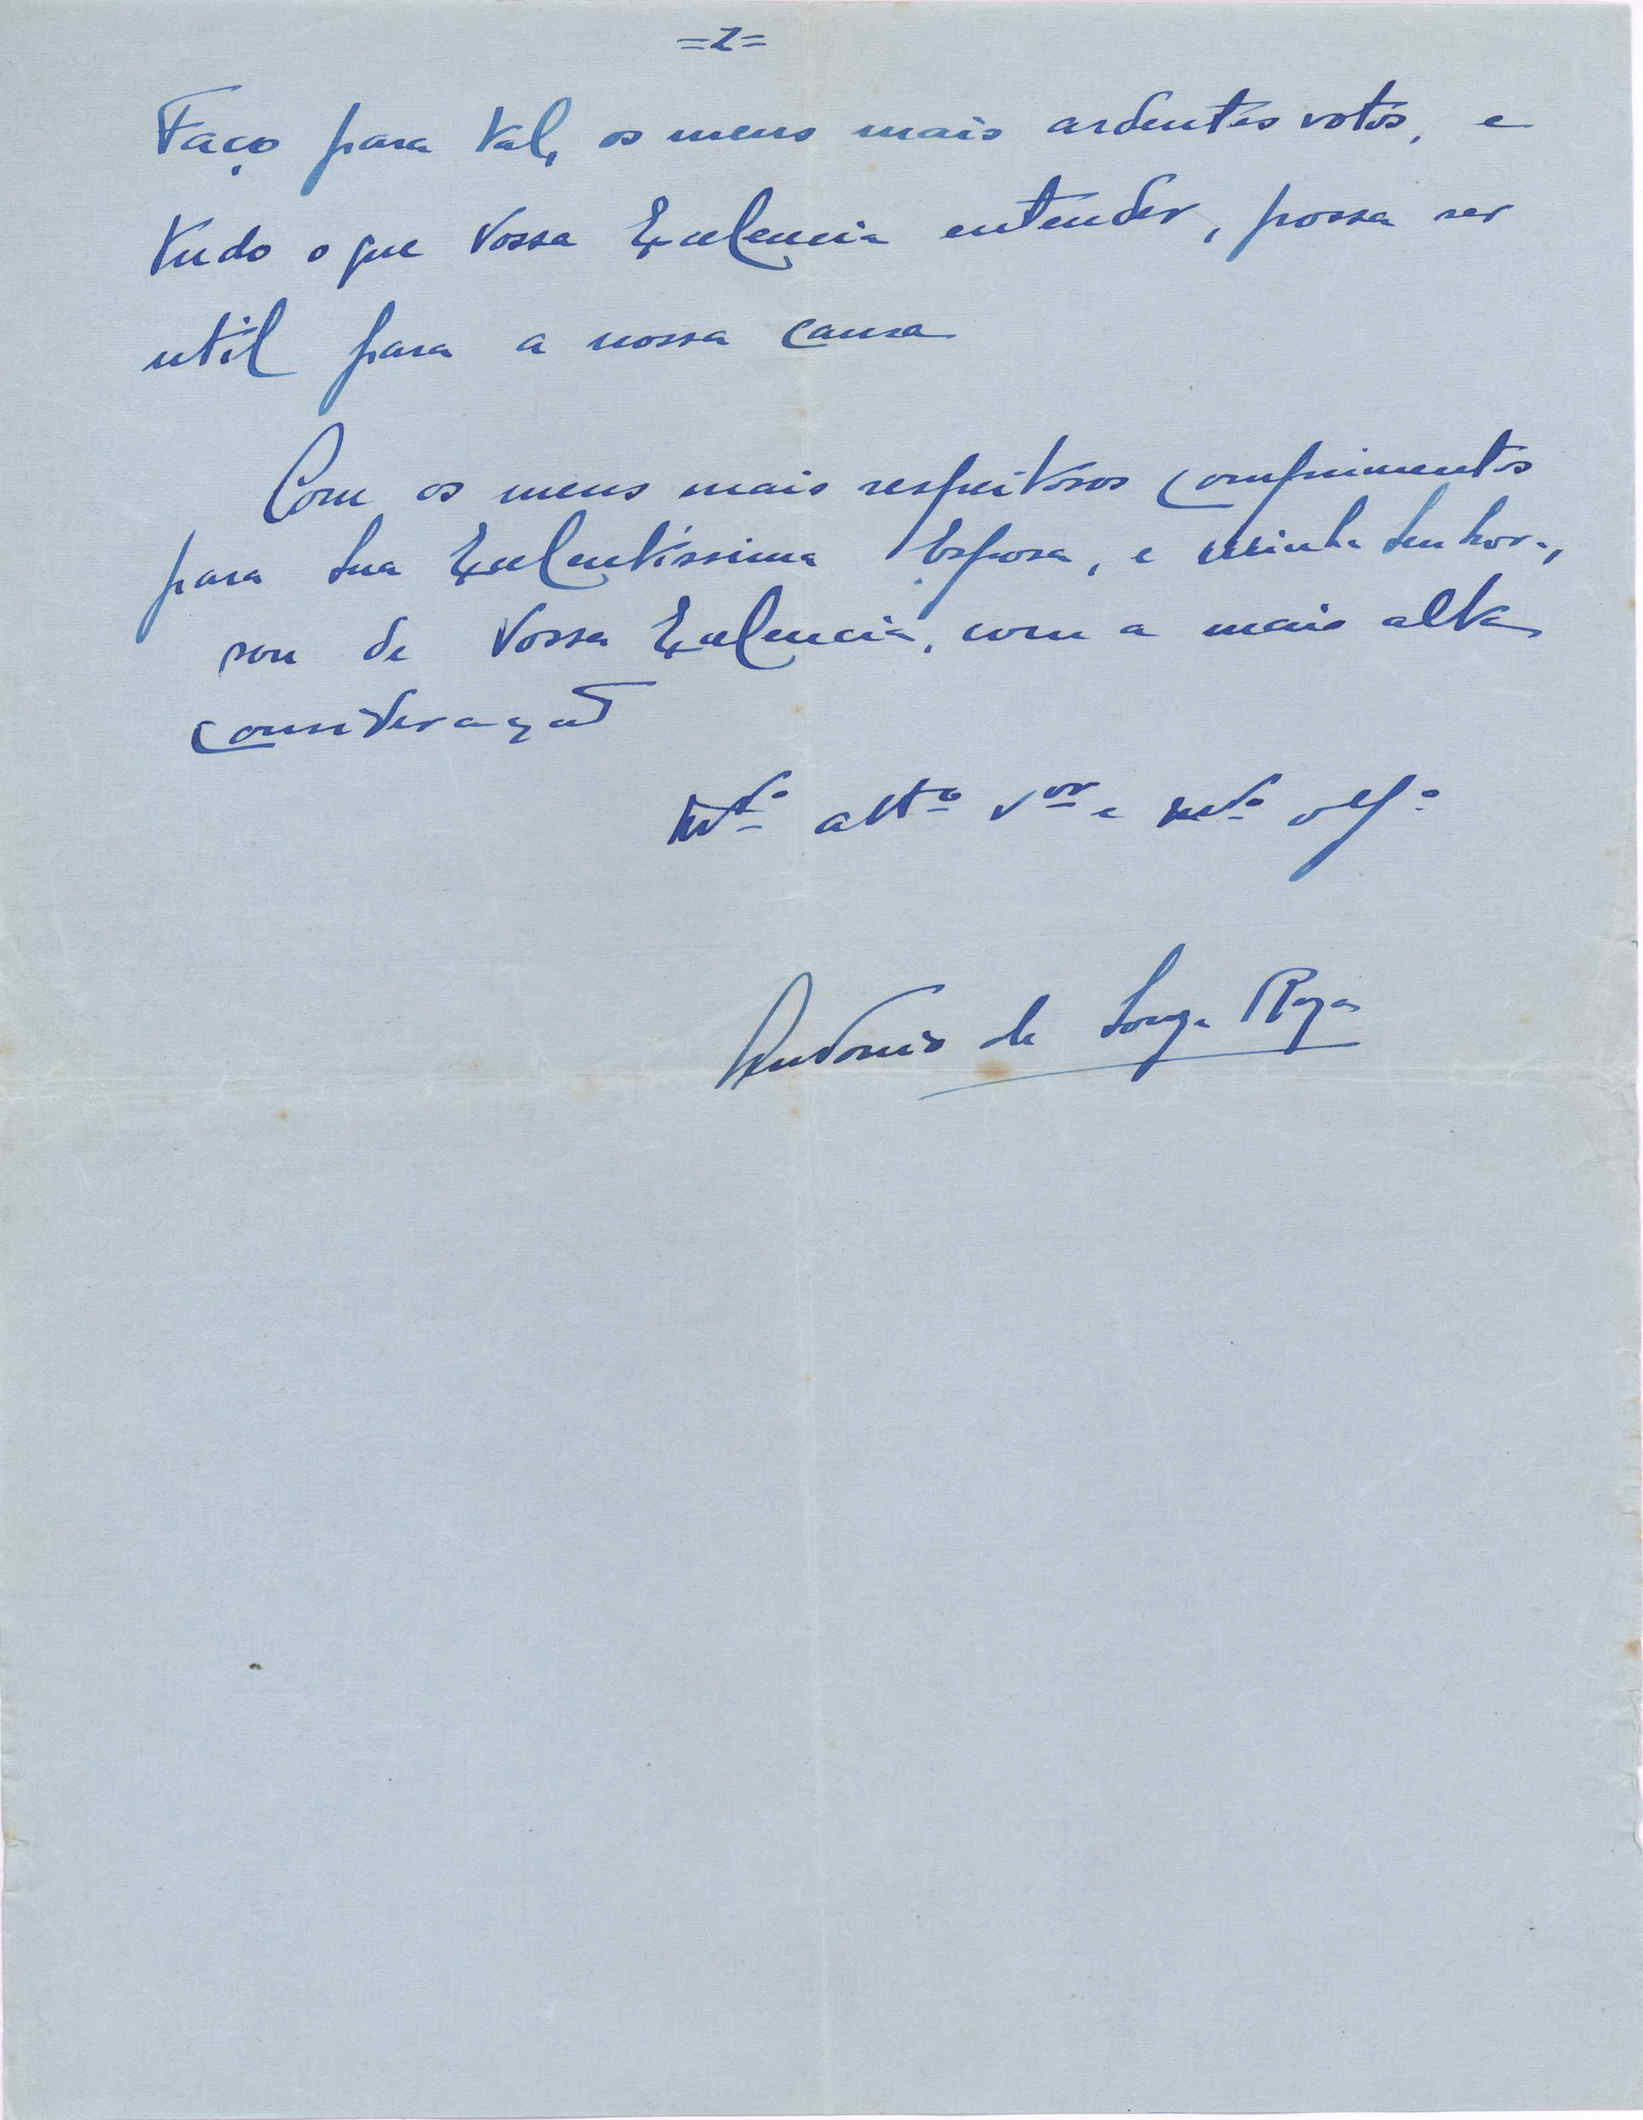 =2=
Faço para tal, os meus mais ardentes votos, e
tudo o que Vossa Excelencia entender, possa ser
util para a nossa causa
Com os meus mais respeitosos comprimentos
para Sua Excelentissima Esposa, e minha Senhora,
sou de Vossa Excelencia, com a mais alta
consideração
Mto. atto. vor e mto. obgo.
Antonio de Souza Roza